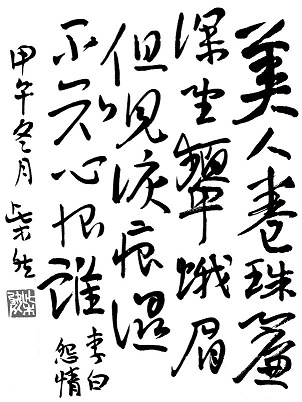 美人卷珠簾
深坐顰蛾眉
但見淚痕濕
不知心恨誰
李白
怨情
甲午冬月